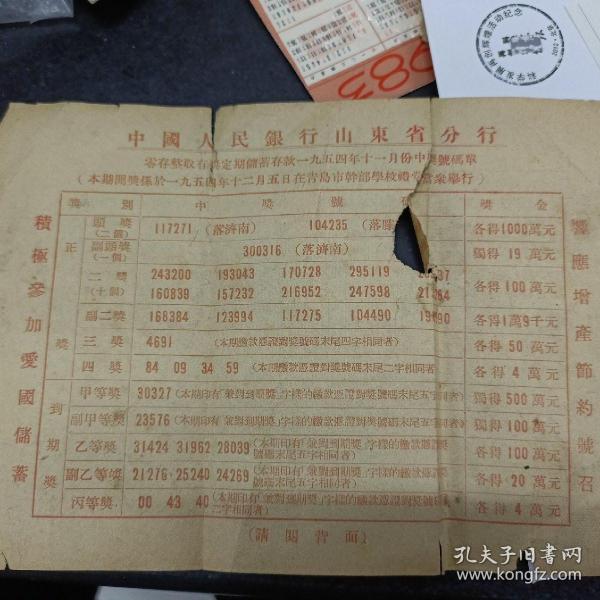 中國人民銀行山東省分行
零存整取有獎定期儲蓄存款一九五四年十一月份中獎號碼單
(本期開獎係於一九五四年十二月五日在青島市幹部學校禮堂當衆舉行)
積極參加愛國儲蓄
響應增產節約號召
獎別 中獎號 獎金
正獎
頭獎(二個) 117271 (落濟南) 104235 (落 各得1000萬元
副頭獎(一個) 300316 (落濟南) 獨得 19 萬元
二獎(十個) 243200 193043 170728 295119 各得 100 萬元
160839 157232 216952 247598
副二獎 168384 123994 117275 104490 各得1萬9千元
三獎 4691 (本期繳款憑證對獎號碼末尾四字相同者) 各得 50 萬元
四獎 84 09 34 59 (本期繳款憑證對獎號碼末尾二字相同者) 各得 4 萬元
到期獎
甲等獎 30327 (本期印有「兼對到期獎」字樣的繳款憑證對獎號碼末尾五字相同者) 獨得 500 萬元
副甲等獎 23576 (本期印有「兼對到期獎」字樣的繳款憑證對獎號碼末尾五字相同者) 獨得 100 萬元
乙等獎 31424 31962 28039 (本期印有「兼對到期獎」字樣的繳款憑證對獎號碼末尾五字相同者) 各得 100 萬元
副乙等獎 21276 25240 24269 (本期印有「兼對到期獎」字樣的繳款憑證對獎號碼末尾五字相同者) 各得 20 萬元
丙等獎 00 43 40 (本期印有「兼對到期獎」字樣的繳款憑證對獎號碼末尾二字相同者) 各得 4 萬元
(請閱背面)
孔夫子旧书网
www.kongfz.com